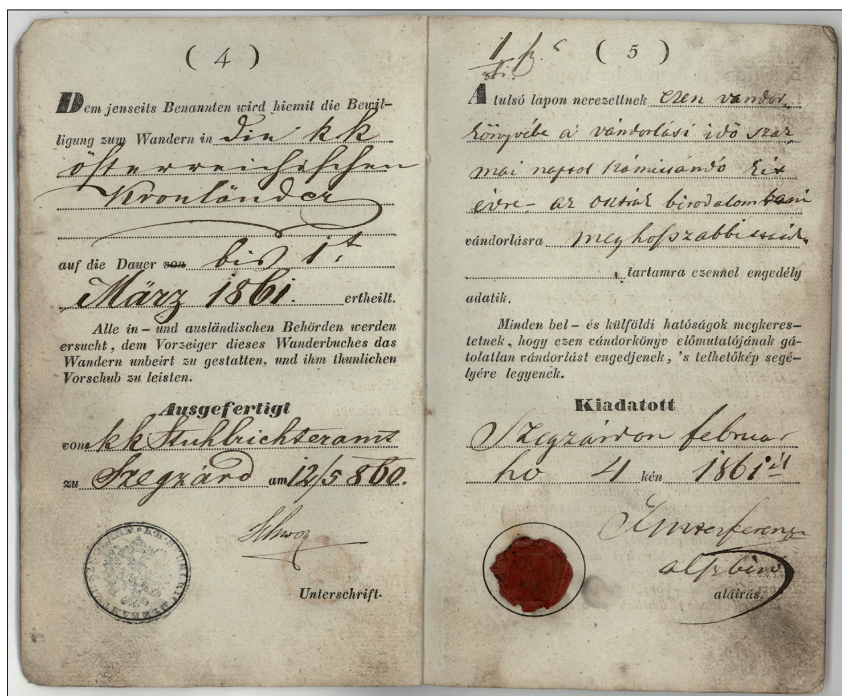 ( 4 )
Dem jenseits Benannten wird hiemit die Bewil-
ligung zum Wandern in die k k
österreichischen
Kronländer
auf die Dauer von bis 1t
März 1861. ertheilt.
Alle in – und ausländischen Behörden werden
ersucht, dem Vorzeiger dieses Wanderbuches das
Wandern unbeirt zu gestatten, und ihm thunlichen
Vorschub zu leisten.
Ausgefertigt
vom kk Stuhlrichteramt
zu Szegzárd am 12/5 860.
Unterschrift.
( 5 )
A tulsó lapon nevezettnek ezen vándor
könyvébe a vándorlási idő
mai naptol számitandó két
évre – az osztrák birodalombani
vándorlásra meghoszabbi
tartamra ezennel engedély
adatik.
Minden bel – és külföldi hatóságok megkeres-
tetnek, hogy ezen vándorkönyv előmutatójának gá-
tolatlan vándorlást engedjenek, 's telhetőkép segé-
lyére legyenek.
Kiadatott
Szegzárdon február
hó 4 kén 1861
alszbiró
aláirás.